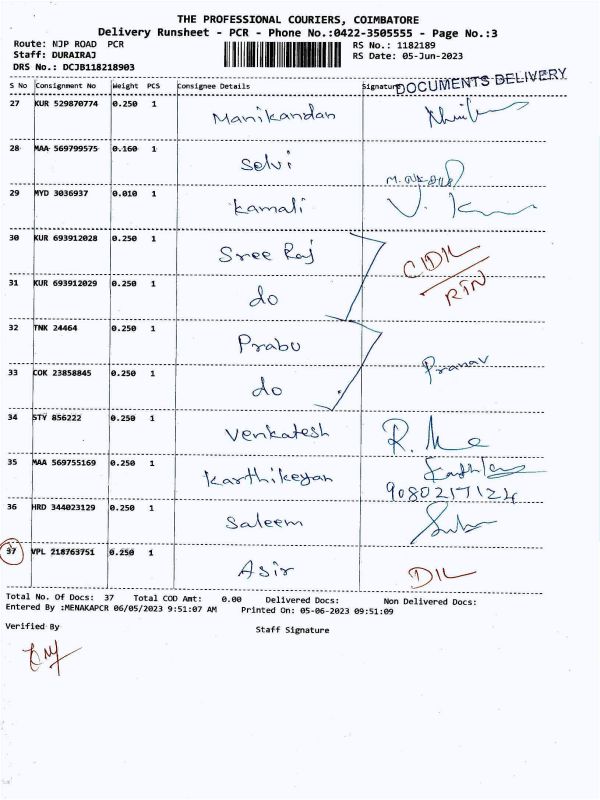 THE PROFESSIONAL COURIERS, COIMBATORE
Delivery Runsheet - PCR - Phone No.:0422-3505555 - Page No.:3
Route: NJP ROAD PCR RS No.: 1182189
Staff: DURAIRAJ RS Date: 05-Jun-2023
DRS No.: DCJB118218903
DOCUMENTS DELIVERY
S No Consignment No Weight PCS Consignee Details Signature
27 KUR 529870774 0.250 1 Manikandan
28 MAA 569799575 0.160 1 Selvi
29 MYD 3036937 0.010 1 Kamali
30 KUR 693912028 0.250 1 Sree Raj
31 KUR 693912029 0.250 1 do RTN
32 TNK 24464 0.250 1 Prabu
33 COK 23858845 0.250 1 do Pranav
34 STY 856222 0.250 1 Venkatesh
35 MAA 569755169 0.250 1 Karthikeyan
9080217124
36 HRD 344023129 0.250 1 Saleem
37 VPL 218763751 0.250 1 Asir DIL
Total No. Of Docs: 37 Total COD Amt: 0.00 Delivered Docs: Non Delivered Docs:
Entered By :MENAKAPCR 06/05/2023 9:51:07 AM Printed On: 05-06-2023 09:51:09
Verified By Staff Signature